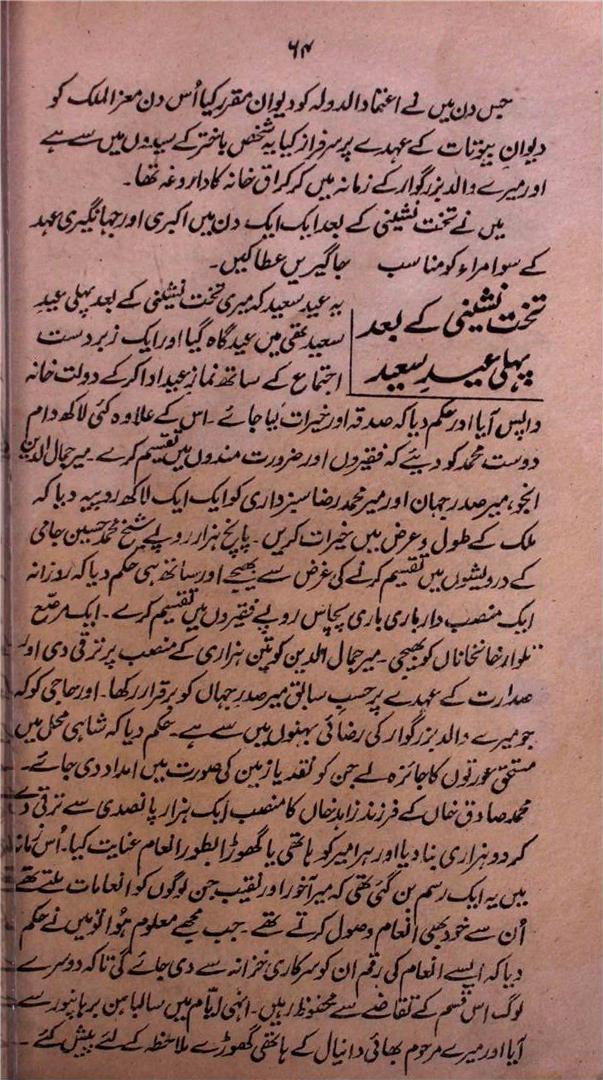 ۶۴
جس دن میں نے اعتماد الدولہ کو دیوان مقرر کیا اُس دن معز الملک کو
دیوانِ بیوتات کے عہدے پر سرفراز کیا یہ شخص باختر کے سیدوں میں سے ہے
اور میرے والد بزرگوار کے زمانہ میں کرکراق خانہ کا داروغہ تھا۔
میں نے تخت نشینی کے بعد ایک ایک دن میں اکبری اور جہانگیری عہد
کے سو امراء کو مناسب جاگیریں عطا کیں۔
تخت نشینی کے بعد
پہلی عیدِ سعید
یہ عید سعید کہ میری تخت نشینی کے بعد پہلی عید
سعید تھی میں عید گاہ گیا اور ایک زبردست
اجتماع کے ساتھ نمازِ عید ادا کر کے دولت خانہ
واپس آیا اور حکم دیا کہ صدقہ اور خیرات کیا جائے۔ اس کے علاوہ کئی لاکھ دام
دوست محمد کو دیئے کہ فقیروں اور ضرورت مندوں میں تقسیم کرے۔ میر جمال الدین
انجو، میر صدر جہان اور میر محمد رضا سبزداری کو ایک ایک لاکھ روپیہ دیا کہ
ملک کے طول و عرض میں خیرات کریں۔ پانچ ہزار روپے شیخ محمد حسین جامی
کے درویشوں میں تقسیم کرنے کی غرض سے بھیجے اور ساتھ ہی حکم دیا کہ روزانہ
ایک منصب دار باری باری پچاس روپے فقیروں میں تقسیم کرے۔ ایک مرصّع
تلوار خانخاناں کو بھیجی۔ میر جمال الدین کو تین ہزاری کے منصب پر ترقی دی اور
صدارت کے عہدے پر حسبِ سابق میر صدر جہاں کو برقرار رکھا۔ اور حاجی کوکہ
جو میرے والد بزرگوار کی رضائی بہنوں میں سے ہے۔ حکم دیا کہ شاہی محل میں
مستحق عورتوں کا جائزہ لے جن کو نقد یا زمین کی صورت میں امداد دی جائے۔
محمد صادق خاں کے فرزند زاہد خاں کا منصب ایک ہزار پانصدی سے ترقی دے
کر دو ہزاری بنا دیا اور ہر امیر کو ہاتھی یا گھوڑا بطور انعام عنایت کیا۔ اُس زمانہ
میں یہ ایک رسم بن گئی تھی کہ میر آخور اور نقیب جن لوگوں کو انعامات ملتے تھے
اُن سے خود بھی انعام وصول کرتے تھے۔ جب مجھے معلوم ہُوا تو میں نے حکم
دیا کہ ایسے انعام کی رقم ان کو سرکاری خزانہ سے دی جائے گی تاکہ دوسرے
لوگ اس قسم کے تقاضے سے محفوظ رہیں۔ انہی ایّام میں سالباہن برہانپور سے
آیا اور میرے مرحوم بھائی دانیال کے ہاتھی گھوڑے ملاحظہ کے لئے پیش کئے۔